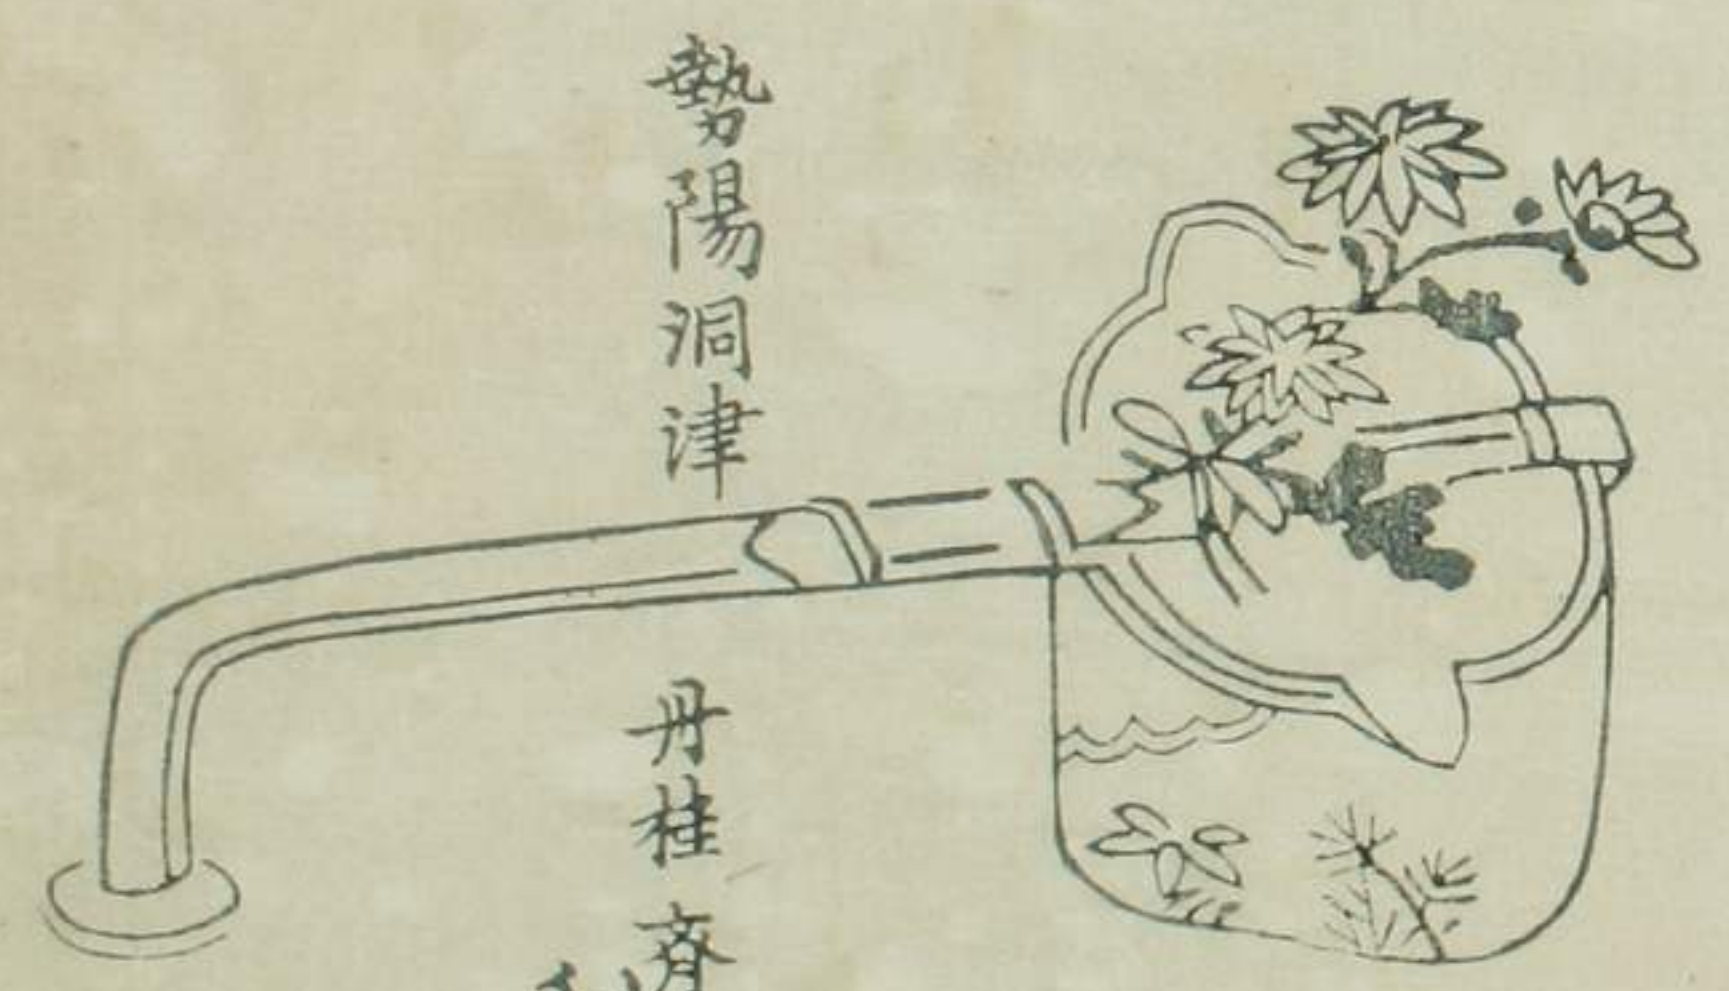 勢陽洞津
丹桂斉